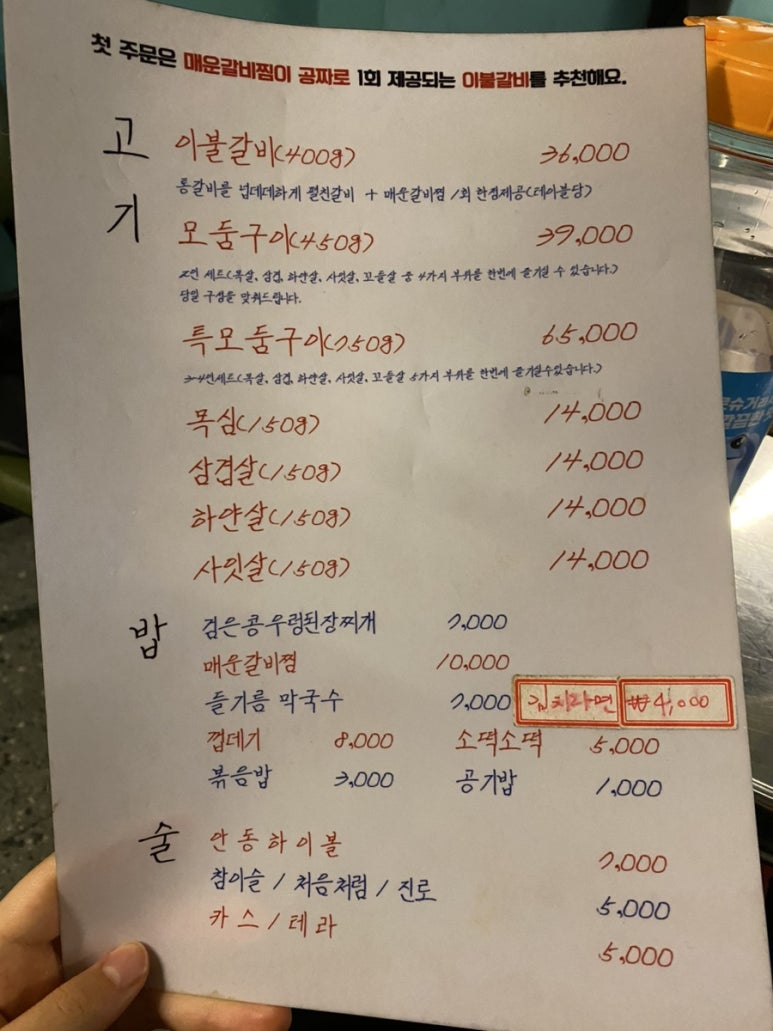 첫 주문은 매운갈비찜이 공짜로 1회 제공되는 이불갈비를 추천해요.
고기
이불갈비(400g) 36,000
통갈비를 넙데데하게 펼친갈비 + 매운갈비찜 1회 한정제공(테이블당)
모둠구이(450g) 39,000
2인 세트(목살, 삼겹, 하얀살, 사잇살, 꼬들살 중 4가지 부위를 한번에 즐기실 수 있습니다.)
당일 구성을 맞춰드립니다.
특모둠구이(750g) 65,000
3-4인세트(목살, 삼겹, 하얀살, 사잇살, 꼬들살 5가지 부위를 한번에 즐기실수있습니다.)
목심(150g) 14,000
삼겹살(150g) 14,000
하얀살(150g) 14,000
사잇살(150g) 14,000
밥
검은콩우렁된장찌개 7,000
매운갈비찜 10,000
들기름 막국수 7,000 김치라면 ₩4,000
껍데기 8,000 소떡소떡 5,000
볶음밥 3,000 공기밥 1,000
술
안동하이볼 7,000
참이슬 / 처음처럼 / 진로 5,000
카스 / 테라 5,000